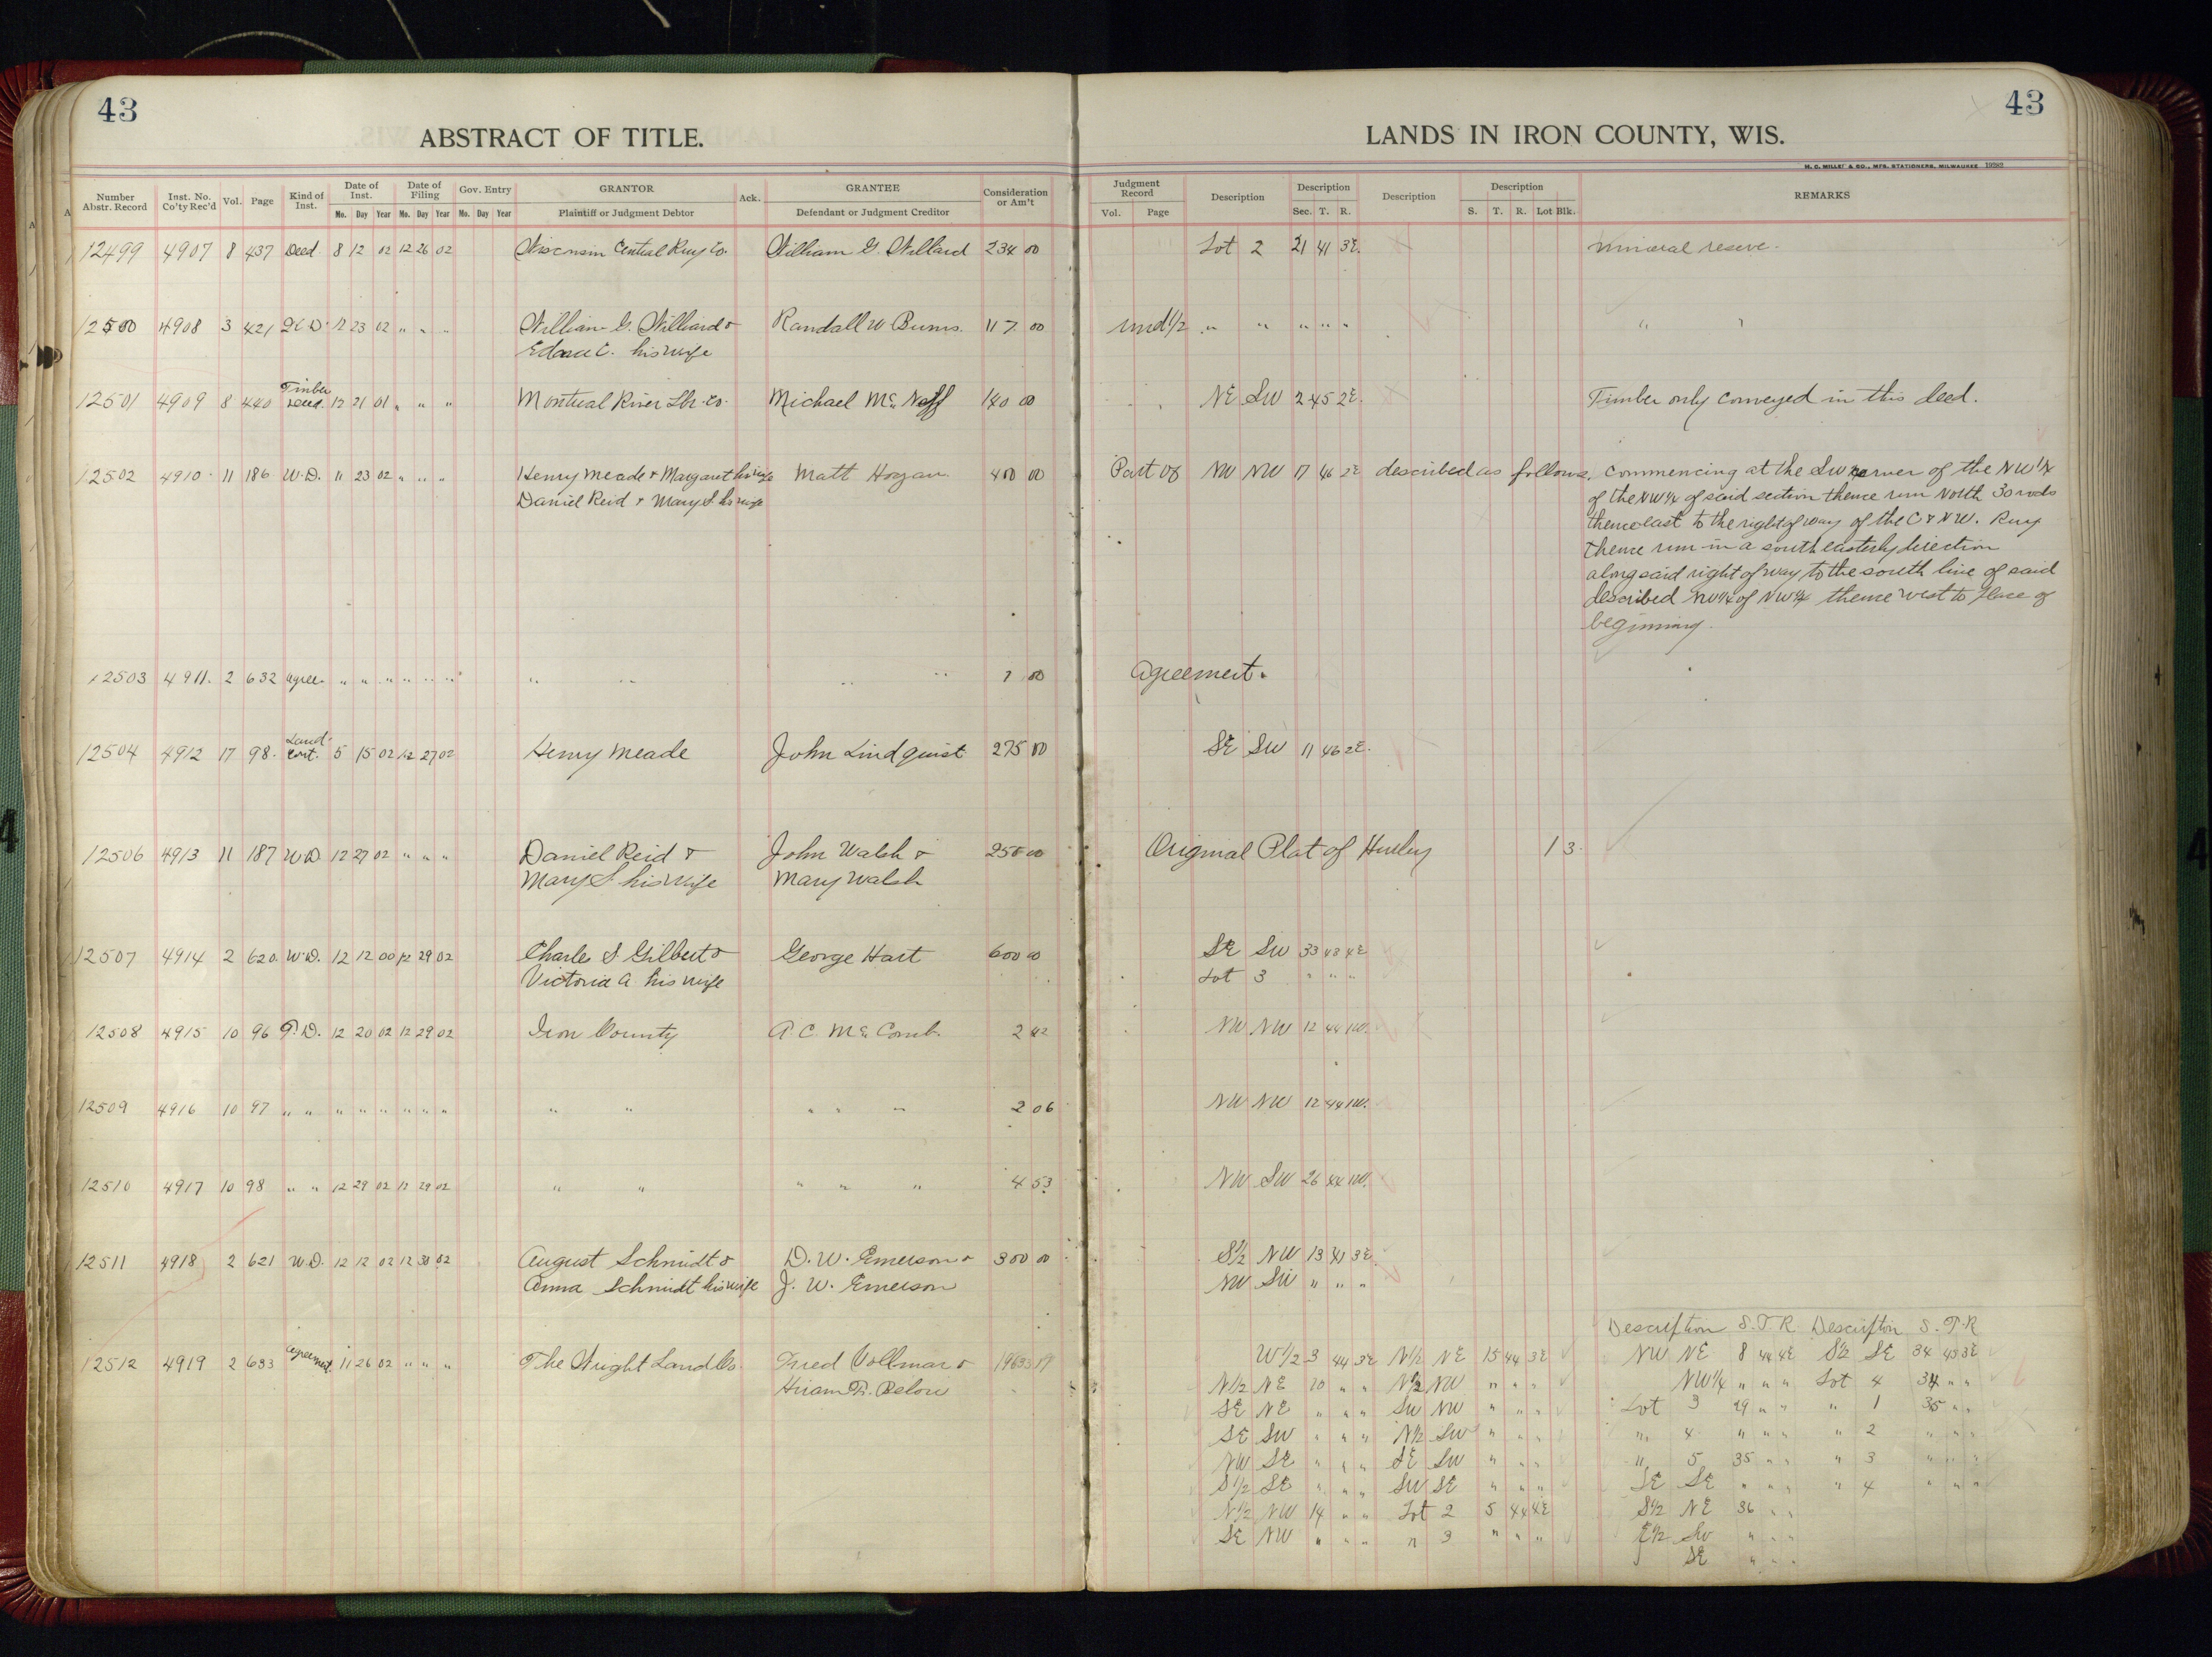 43
ABSTRACT OF TITLE.
Number Abstr. Record
Inst. No. Co'ty Rec'd
Vol.
Page
Kind of Inst.
Date of Inst.
Mo. Day Year
Date of Filing
Mo. Day Year
Gov. Entry
Mo. Day Year
GRANTOR
Plaintiff or Judgment Debtor
Ack.
GRANTEE
Defendant or Judgment Creditor
Consideration or Am't
43
LANDS IN IRON COUNTY, WIS.
H. C. MILLER & CO., MFG. STATIONERS, MILWAUKEE 19282
Judgment Record
Vol. Page
Description
Description
Sec. T. R.
Description
Description
S. T. R. Lot Blk.
REMARKS
12499 4907 8 437 Deed 8 12 02 12 26 02 Wisconsin Central Ruy Co. William G. Willard 234 00 Lot 2 21 41 3E. Mineral reserve.
12500 4908 3 421 12 23 02 " " " William G. Williard & Randall W Burns. 117 00 und1/2 " " " " " " "
his wife
Timber
12501 4909 8 440 Deed. 12 21 01 " " " Montreal River Lbr. Co. Michael 140 00 NE SW 2 45 2E. Timber only conveyed in this deed.
12502 4910 11 186 W.D. 11 23 02 " " " Henry Meade & Margaret his wife Matt Hogan 400 00 Part of NW NW 17 46 2E described as follows. Commencing at the SW corner of the NW1/4
Daniel Reid & Mary S his wife of the NW1/4 of said section thence run North 30 rods
thence east to the right of way of the C & N W. Ruy
thence run in a south easterly direction
along said right of way to the south line of said
described NW1/4 of NW1/4 thence west to place of
beginning.
12503 4911. 2 632 agree. " " " " " " " " " " 1 00 Agreement.
Land
12504 4912 17 98. Cont. 5 15 02 12 27 02 Henry Meade John Lindquist 275 00 SE SW 11 46 2E.
12506 4913 11 187 W.D. 12 27 02 " " " Daniel Reid & John Walsh & 250 00 Original Plat of Hurley 1 3.
Mary S. his wife Mary Walsh
12507 4914 2 620 W.D. 12 12 00 12 29 02 Charles S Gilbert & George Hart 600 00 SE SW 33 43 4E
Victoria A. his wife Lot 3 " " "
12508 4915 10 96 T.D. 12 20 02 12 29 02 Iron County A. C. McComb. 2 NW NW 12 44 1W.
12509 4916 10 97 " " " " " " " " " " " " " 2 06 NW NW 12 44 1W.
12510 4917 10 98 " " 12 29 02 12 29 02 " " " " " 4 53 NW SW 26 44 1W.
12511 4918 2 621 W.D. 12 12 02 12 30 02 August Schmidt & D. W. Emerson & 300 00 S1/2 NW 13 41 3E.
Anna Schmidt his wife J. W. Emerson NW SW " " "
Description S. T. R. Description S. T. R
12512 4919 2 633 Agreement 11 26 02 " " " The Wright Land Co. Fred Vollmar & W1/2 3 44 3E N1/2 NE 15 44 3E NW NE 8 44 4E S1/2 SE 34 43 3E
Hiram Below N1/2 NE 10 " " N1/2 NW " " " NW1/4 " " " Lot 4 34 " "
SE NE " " " SW NW " " " Lot 3 29 " " " 1 35 " "
SE SW " " " N1/2 SW " " " " 4 " " " " 2 " " "
NW SE " " " SE SW " " " " 5 35 " " " 3 " " "
S1/2 SE " " " SW SE " " " SE SE " " " " 4 " " "
N1/2 NW 14 " " Lot 2 5 44 4E S1/2 NE 36 " "
SE NW " " " " 3 " " " E1/2 SW " " "
SE " " "